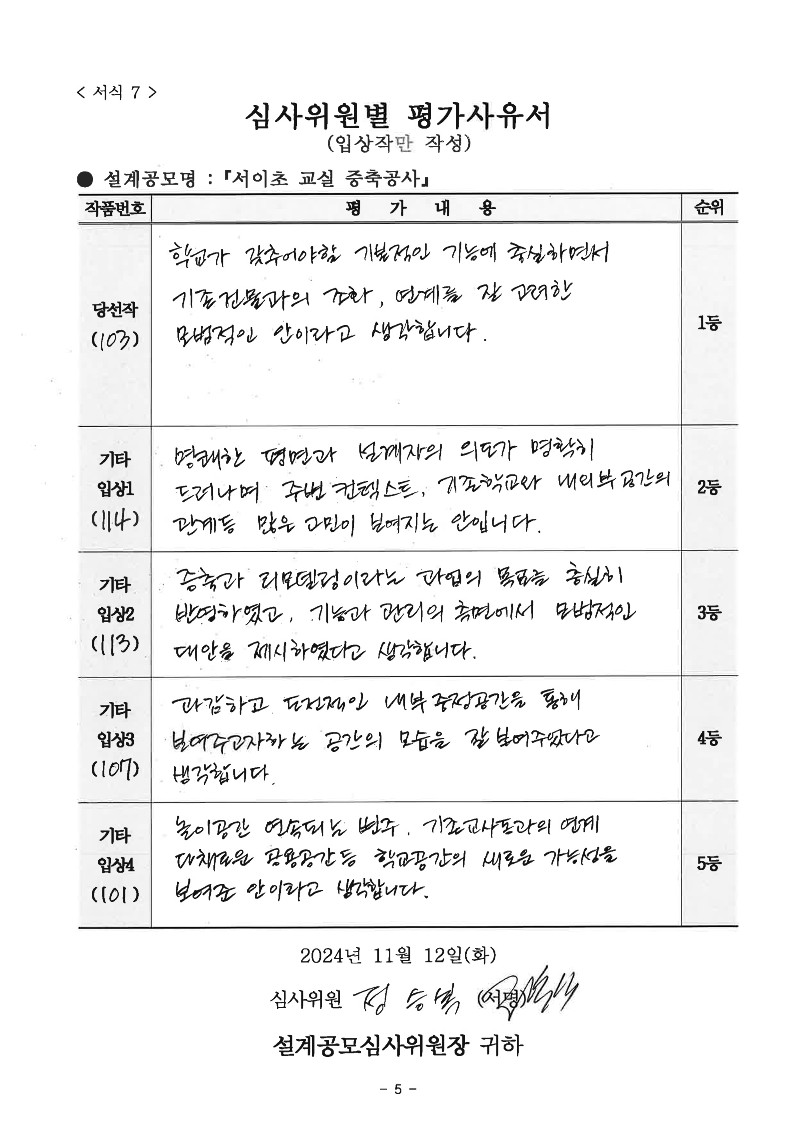 < 서식 7 >
심사위원별 평가사유서
(입상작만 작성)
● 설계공모명 : 『서이초 교실 증축공사』
작품번호 평 가 내 용 순위
당선작
(103)
학교가 갖추어야할 기본적인 기능에 충실하면서
기존건물과의 조화, 연계를 잘 고려한
모범적인 안이라고 생각합니다.
1등
기타
입상1
(114)
명쾌한 평면과 설계자의 의도가 명확히
드러나며 주변 컨텍스트, 기존학교와 내외부 공간의
관계등 많은 고민이 보여지는 안입니다.
2등
기타
입상2
(113)
증축과 리모델링이라는 과업의 목표를 충실히
반영하였고, 기능과 관리의 측면에서 모범적인
대안을 제시하였다고 생각합니다.
3등
기타
입상3
(107)
과감하고 도전적인 내부중정공간을 통해
보여주고자하는 공간의 모습을 잘 보여주었다고
생각합니다.
4등
기타
입상4
(101)
놀이공간 연속되는 변주, 기존교사동과의 연계
다채로운 공용공간등 학교공간의 새로운 가능성을
보여준 안이라고 생각합니다.
5등
2024년 11월 12일(화)
심사위원 정 승 (서명)
설계공모심사위원장 귀하
- 5 -